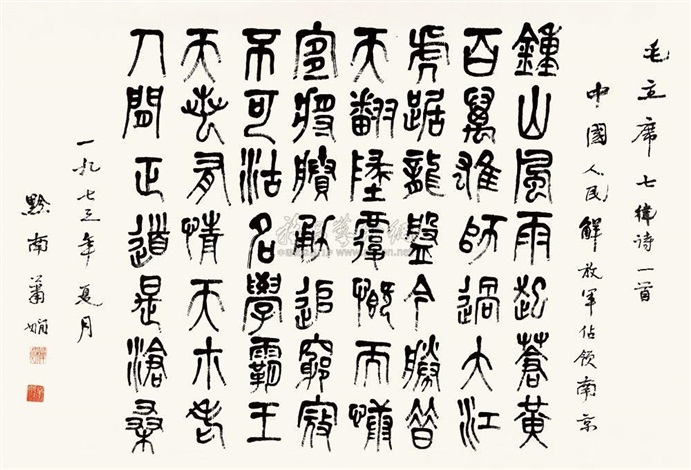 毛主席七律诗一首
中國人民解放军佔领南京
鍾山風雨起蒼黃
百萬雄師過大江
虎踞龍盤今勝昔
天翻墬覆慨而慷
宜將賸勇追窮寇
不可沽名學霸王
天若有情天亦老
人間正道是滄桑
一九七三年夏月
黔南蕭嫻